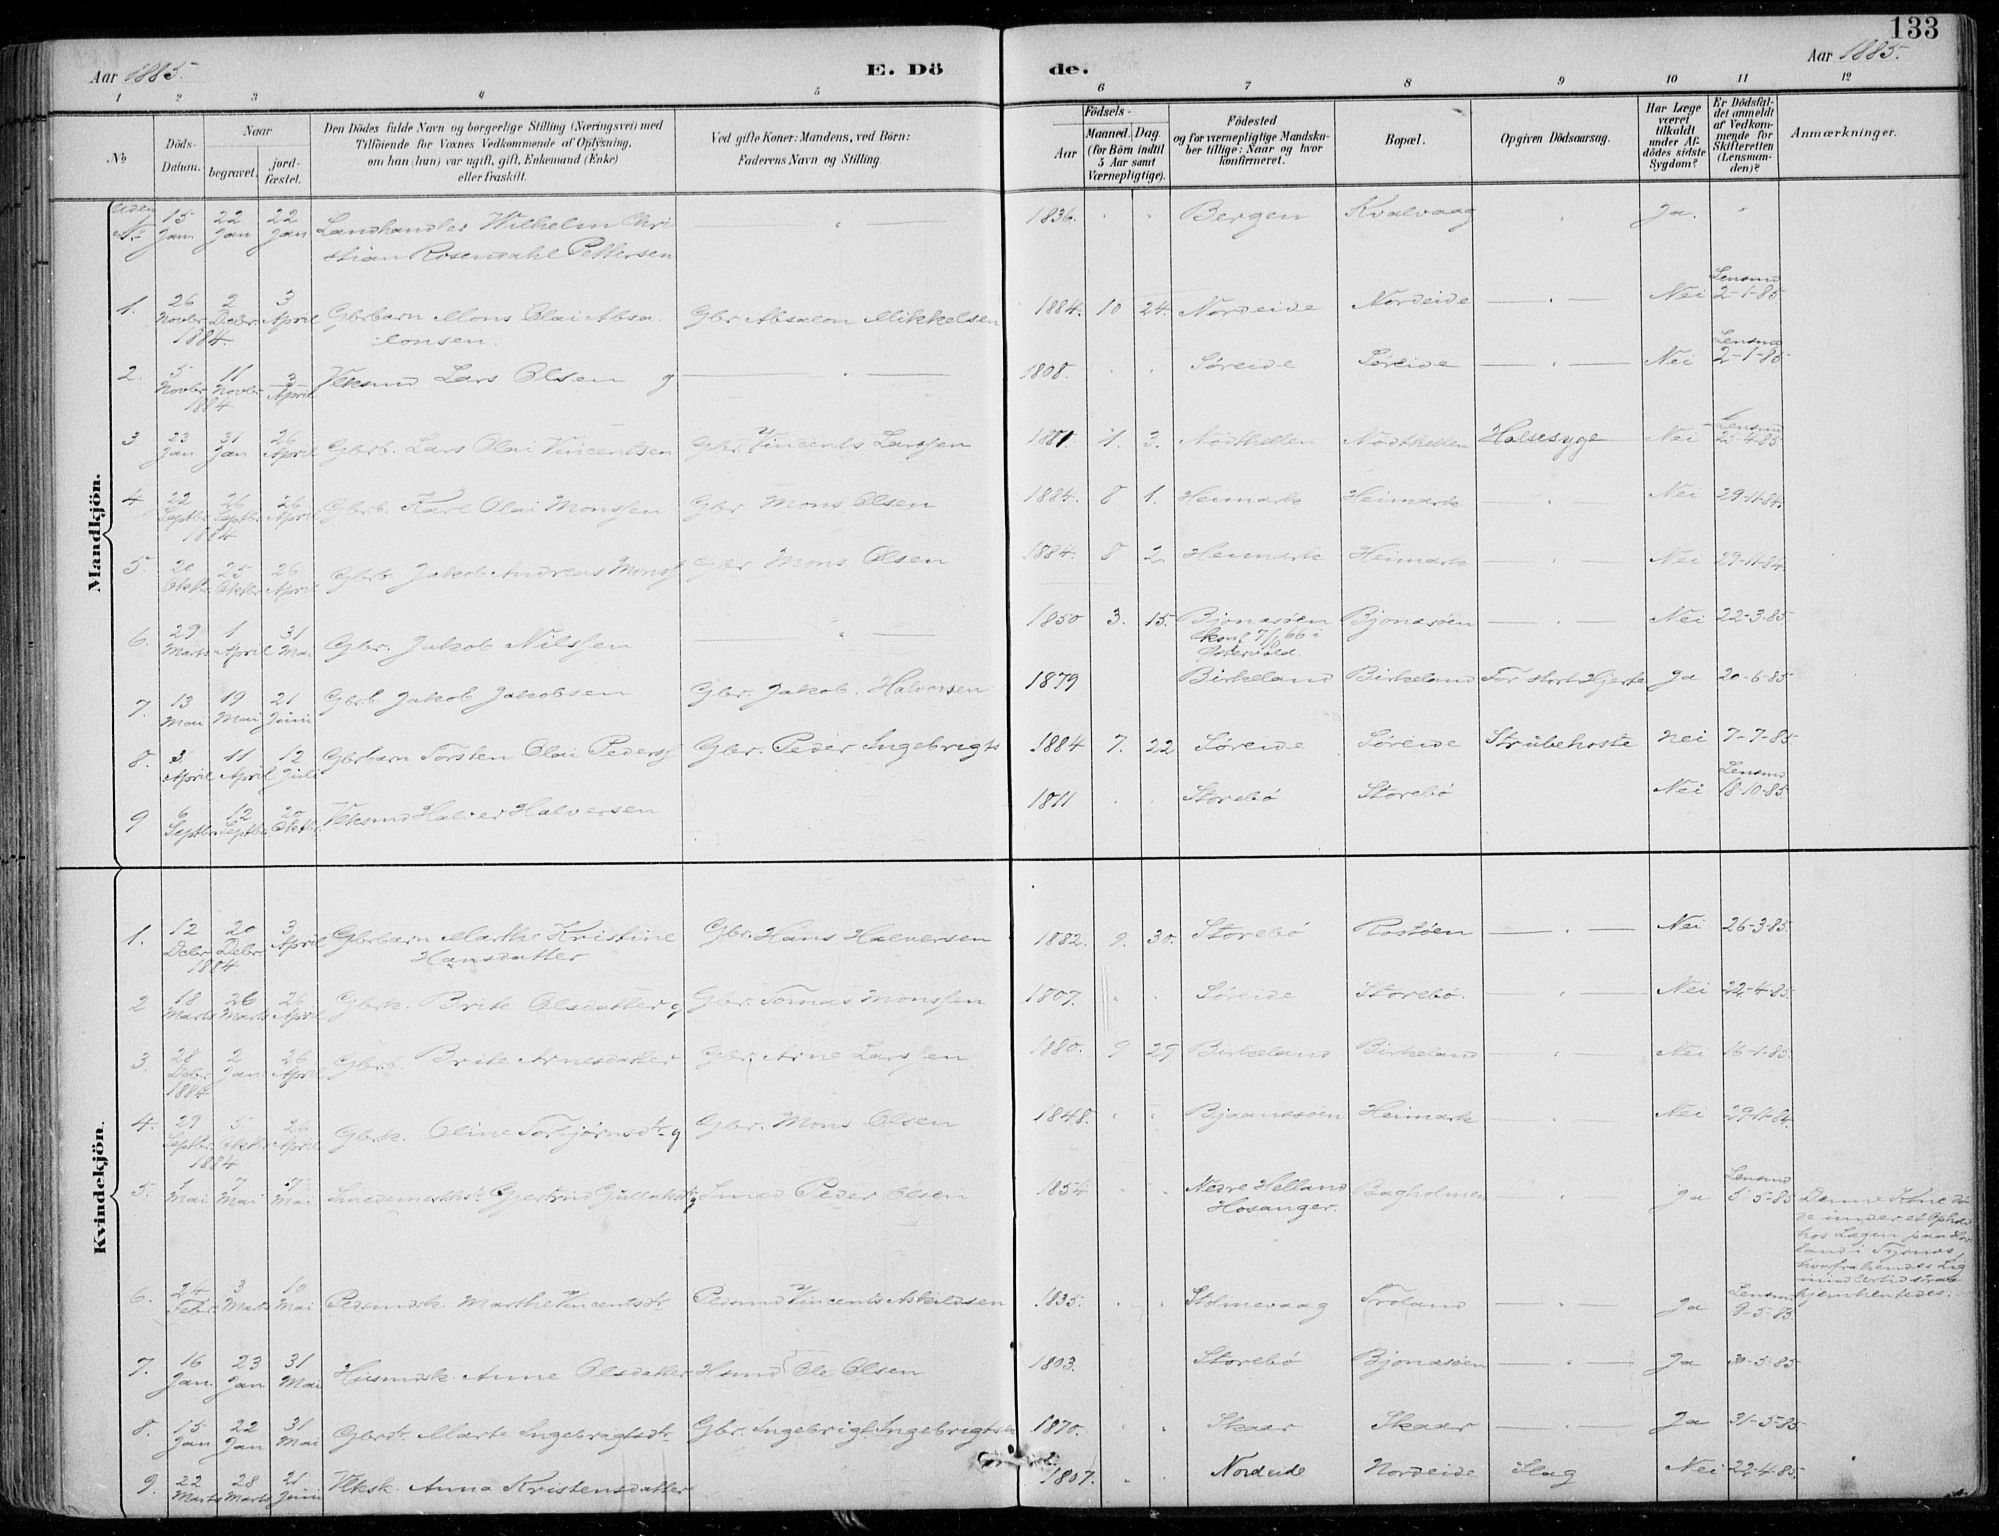 133
Aar 1885.
E. Döde.
Aar 1885.
1 2 3 4 5 6 7 8 9 10 11 12
No
Döds-Datum.
Naar
begravet.
jord-fæstet.
Den Dödes fulde Navn og borgerlige Stilling (Næringsvei) med
Tilföiende for Voxnes Vedkommende af Oplysning,
om han (hun) var ugift, gift, Enkemand (Enke)
eller fraskilt.
Ved gifte Koner: Mandens, ved Börn:
Faderens Navn og Stilling.
Födsels-
Aar
Maaned. Dag.
(for Börn indtil
5 Aar samt
Værnepligtige).
Födested
og for værnepligtige Mandska-
ber tillige: Naar og hvor
konfirmeret.
Bopæl.
Opgiven Dödsaarsag.
Har Læge
været
tilkaldt
under Af-
dödes sidste
Sygdom?
Er Dödsfal-
det anmeldt
af Vedkom-
mende for
Skifteretten
(Lensman-
den)?
Anmærkninger.
Mandkjön.
Uden No 15 Jan. 22 Jan 22 Jan Landhandler Wilhelm Chri 1836. Bergen Kvalvaag Ja.
stian Rosendahl Pettersen
1. 26 Novbr. 2 Debr. 1884. 3 April Gbrbarn Mons Olai Absa Gbr Absalon Mikkelsen 1884. 10 24. Nordeide Nordeide Nei Lensmd 2-1-85
lonsen.
2. 5 Novbr 11 Novbr 1884 3 April Veksmd Lars Olsen g 1808. Søreide Søreide Nei Lensmd 2-1-85
3 23 Jan 31 Jan 26 April Gbrb. Lars Olai Vincentsen Gbr. Vincents Larssen 1881 1. 3. Nødtvellen Nødtvellen Halsesyge Nei Lensmd 25-4-85
4. 22 Septbr 26 Septbr 1884 26 April Gbrb. Karl Olai Monssen Gbr Mons Olsen 1884. 8 1. Heimark Heimark Nei 29-11-84.
5. 20 Oktbr. 25 Oktbr 26 April Gbrb. Jakob Andreas Monss Gbr Mons Olsen 1884. 8 2 Heimark Heimark Nei 29-11-84
6. 29 Marts 1 April 31 Mai Gbr. Jakob Nilssen 1850 3. 15. Bjonasøen Bjonasøen Nei 22-3-85
7. 13 Mai 19 Mai 21 Juni Gbrb. Jakob Jakobsen Gbr. Jakob Halvorsen 1879 Birkeland Birkeland For stort Hjerte Ja 20-6-85
8. 3 April 11 April 12 Juli Gbrbarn Torsten Olai Peders Gbr. Peder Ingebrigts 1884 7. 22 Søreide Søreide Strubehoste Nei 7-7-85
9 6 Septbr. 12 Septbr 20 Oktbr. Veksmd Halver Halversen 1811 Storebø Storebø Nei Lensmd 18-10-85
Kvindekjön.
1. 12 Debr 20 Debr 1884 3 April Gbrbarn Marthe Kristine Gbr. Hans Halversen 1882. 9. 30. Storebø Rostøen Nei 26-3-85.
Hansdatter
2 18 Marts 26 Marts 26 April Gbrk. Brite Olsdatter g Gbr. Tomas Monssen 1807. Søreide Storebø. Nei 22-4-85.
3. 28 Debr. 1884 2 Jan 26 April Gbrb. Brite Arnesdatter Gbr. Arne Larssen 1880. 9 29 Birkeland Birkeland Nei 16-1-85.
4. 29 Septbr 5 Oktbr 1884 26 April Gbrk. Oline Torbjørnsdtr. g Gbr. Mons Olsen 1848. Bjaanesøen Heimark Nei 29-11-84.
5. 1 Mai 7 Mai 7 Mai Gjertrud Smed Peder Olsen 1854 Nedre Helland Hosanger. Bagholmen Ja Lensmd 5-5-85 Denne Kone dø
de under et Ophold
hos Lægen paa
land i Tysnes,
hvorfra hendes Lig
imidlertid strax
hjemhentedes.
6. 24 Febr 3 Marts 10 Mai Marthe Vincentsdtr Vincents Askildsen 1835. Stolmevaag Froland Ja Lensmd 9-5-85
7. 16 Jan. 23 Jan 31 Mai Husmdsk. Anne Olsdatter Hsmd Ole Olsen 1803. Storebø Bjonasøen Ja 30-5-85
8. 15 Jan 22 Jan 31 Mai Gbrdtr. Marte Ingebrigtsdtr. Gbr. Ingebrigt Ingebrigtsen 1870. Skaar Skaar Ja 31-5-85
9. 22 Marts 28 Marts 21 Juni Veksk. Anna Kristensdatter 1807. Nordeide Nordeide Slag Nei 22-4-85